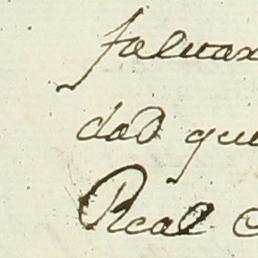 falvax
dad que
Real C